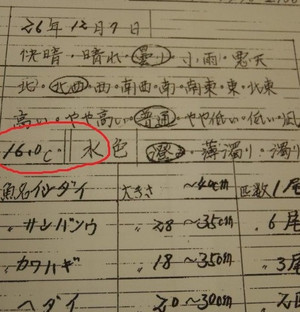 26年12月7日
快晴・晴れ・曇り・小雨・悪天
北・北西・西・南西・南・南東・東・北東
高い・やや高い・普通・やや低い・低い・
16.0℃ 水色 澄・薄濁り・濁り
魚名 イシダイ 大きさ ~40cm 匹数 1尾
サンバソウ 28~35cm 6尾
カワハギ 18~35cm 3尾
ヘダイ 20~30cm 尾